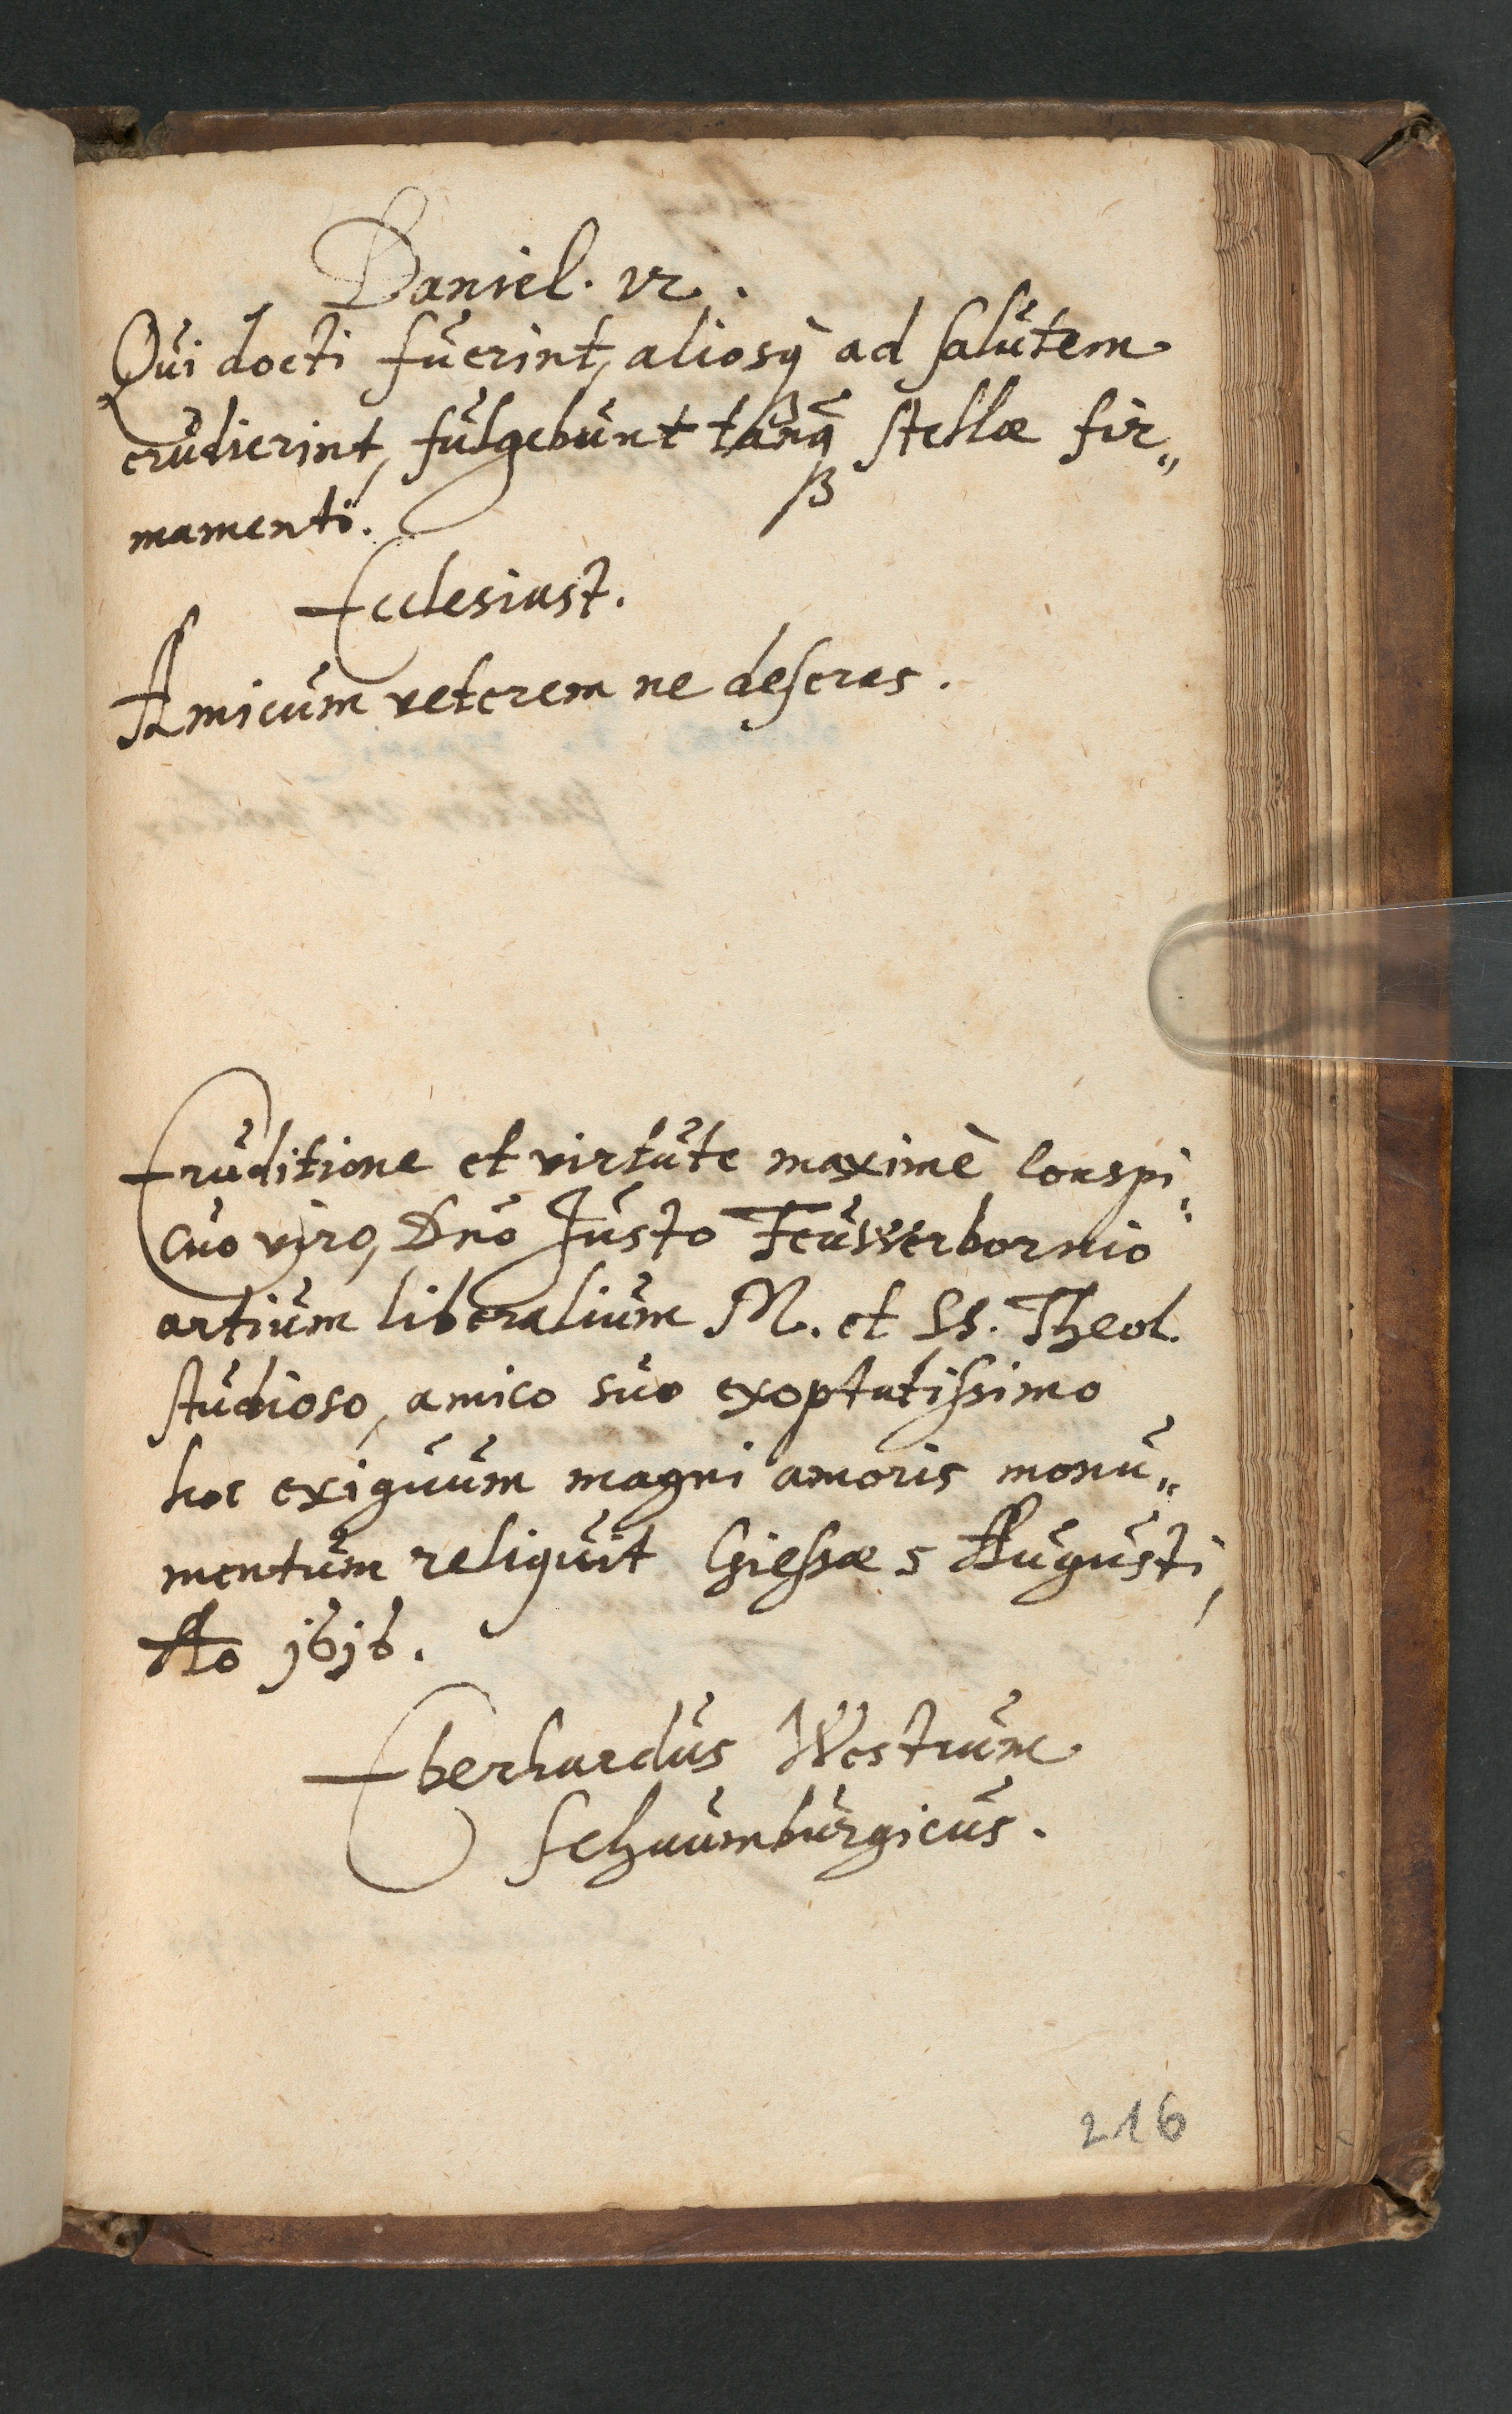 Daniel. 12.
Qui docti fuerint, aliosq̀ ad salutem
erudierint, fulgebunt tanq̃ stellæ fir„
mamenti.
Ecclesiast.
Amicum veterem ne deseras.
Eruditione et virtute maximè conspi„
cuo viro, Dn̄o Justo Feuwerbornio
artium liberalium M. et SS. Theol.
studioso, amico suo exoptatissimo
hoc exiguum magni amoris monu„
mentum reliquit Giessæ 5 Augusti,
Ao 1616.
Eberhardus Westrum
Schaumburgicus.
216